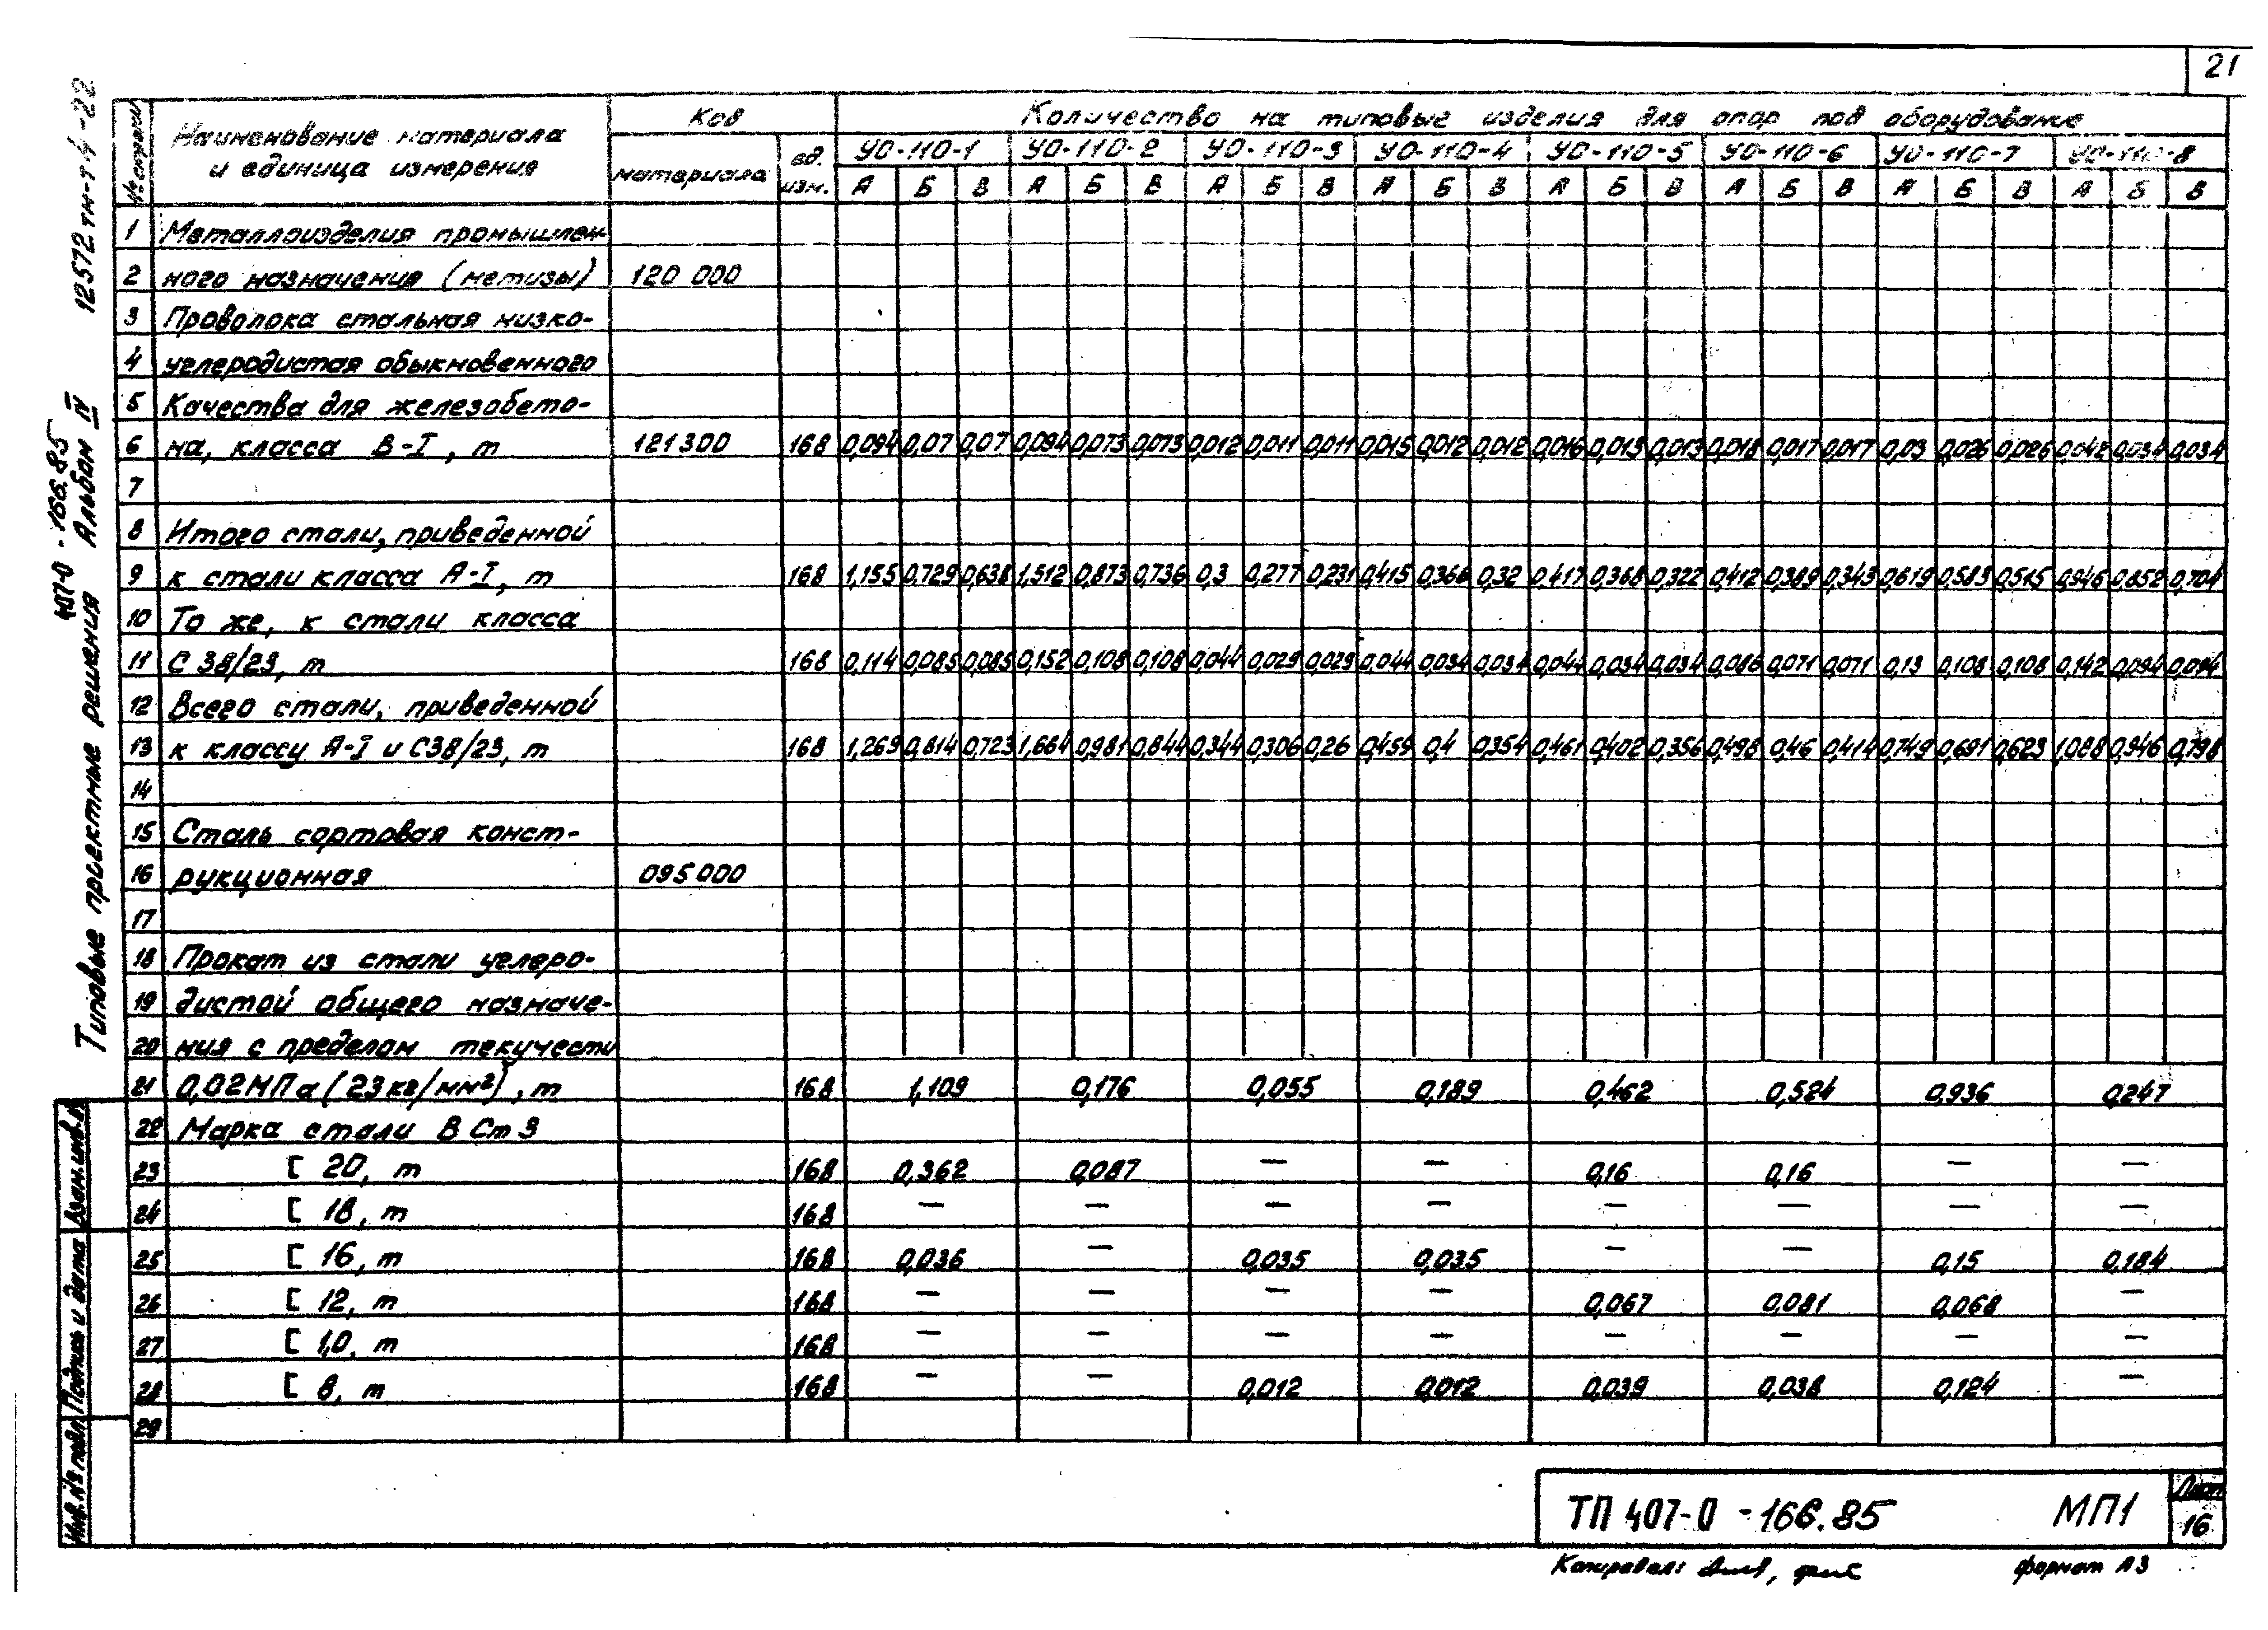 21
12572 тм-т4-22
407-0-166.85
Типовые проектные решения Альбом IV
№ строки
Наименование материала
и единица измерения
Код
материала
ед.
изм.
Количество на типовые изделия для опор под оборудование
УО-110-1 УО-110-2 УО-110-3 УО-110-4 УО-110-5 УО-110-6 УО-110-7 УО-110-8
А Б В А Б В А Б В А Б В А Б В А Б В А Б В А Б В
1 Металлоизделия промышлен
2 ного назначения (метизы) 120 000
3 Проволока стальная низко-
4 углеродистая обыкновенного
5 Качества для железобето-
6 на, класса В-I, т 121300 168 0,094 0,07 0,07 0,094 0,073 0,073 0,012 0,011 0,011 0,015 0,012 0,012 0,016 0,013 0,013 0,018 0,017 0,017 0,03 0,026 0,026 0,042 0,034 0,034
7
8 Итого стали, приведенной
9 к стали класса А-I, т 168 1,155 0,729 0,638 1,512 0,873 0,736 0,3 0,277 0,231 0,415 0,366 0,32 0,417 0,368 0,322 0,412 0,389 0,343 0,619 0,583 0,515 0,946 0,852 0,704
10 То же, к стали класса
11 С 38/23, т 168 0,114 0,085 0,085 0,152 0,108 0,108 0,044 0,029 0,029 0,044 0,034 0,034 0,044 0,034 0,034 0,086 0,071 0,071 0,13 0,108 0,108 0,142 0,094 0,094
12 Всего стали, приведенной
13 к классу А-I и С38/23, т 168 1,269 0,814 0,723 1,664 0,981 0,844 0,344 0,306 0,26 0,459 0,4 0,354 0,461 0,402 0,356 0,498 0,46 0,414 0,749 0,691 0,623 1,088 0,946 0,798
14
15 Сталь сортовая конст-
16 рукционная 095000
17
18 Прокат из стали углеро-
19 дистой общего назначе-
20 ния с пределом текучести
21 0,02МПа (23кг/мм²), т 168 1,109 0,176 0,055 0,189 0,462 0,524 0,936 0,247
22 Марка стали ВСт3
23 [ 20, т 168 0,362 0,087 — — 0,16 0,16 — —
24 [ 18, т 168 — — — — — — — —
25 [ 16, т 168 0,036 — 0,035 0,035 — — 0,15 0,184
26 [ 12, т 168 — — — — 0,067 0,081 0,068 —
27 [ 10, т 168 — — — — — — — —
28 [ 8, т 168 — — 0,012 0,012 0,039 0,038 0,124 —
29
Взам.инв.№
Подпись и дата
Инв.№ подл.
ТП 407-0-166.85 МП1
Лист
16
Копировал:
формат А3